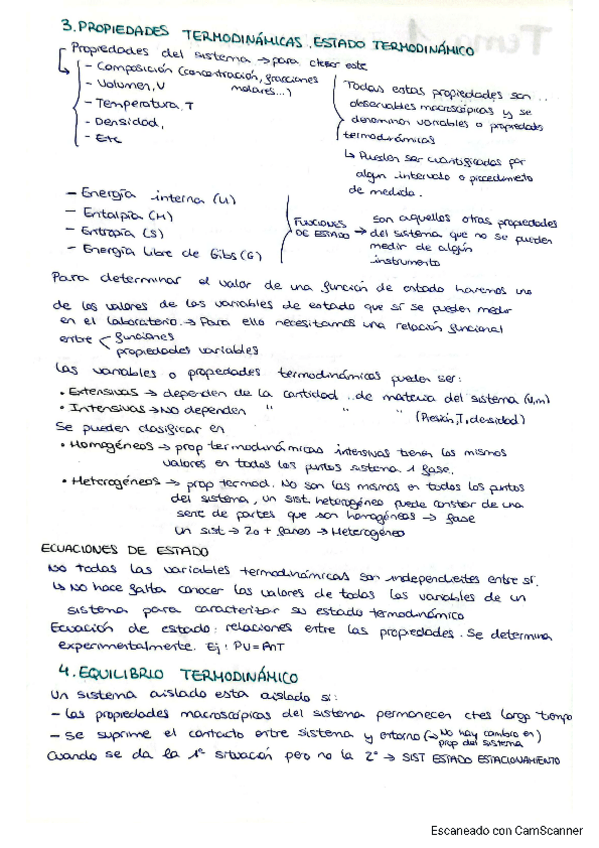 3. PROPIEDADES TERMODINÁMICAS. ESTADO TERMODINÁMICO
Propiedades del sistema → para clasar este
- Composición (concentración, fracciones molares...)
- Volumen, V
- Temperatura, T
- Densidad,
- Etc
Todas estas propiedades son..
observables macroscópicas y se
denominan variables o propiedades
termodinámicas
↳ Pueden ser cuantificadas por
algún intervalo o procedimiento
de medida.
- Energía interna (U)
- Entalpía (H)
- Entropía (S)
- Energía libre de Gibs (G)
FUNCIONES DE ESTADO →
son aquellos otras propiedades
del sistema que no se pueden
medir de algún
instrumento
Para determinar el valor de una función de estado haremos uno
de los valores de las variables de estado que sí se pueden medir
en el laboratorio. → Para ello necesitamos una relación funcional
entre < funciones
propiedades variables
Las variables o propiedades termodinámicas pueden ser:
• Extensivas → dependen de la cantidad ..de materia del sistema (V,m)
• Intensivas → No dependen " " " (Presión, T, densidad)
Se pueden clasificar en
• Homogéneos → prop termodinámicas intensivas tienen los mismos
valores en todos los puntos sistema. 1 fase.
• Heterogéneos → prop termod. No son las mismas en todos los puntos
del sistema, un sist. heterogéneo puede constar de una
serie de partes que son homogéneos → fase
Un sist → 2 o + fases → Heterogéneo
ECUACIONES DE ESTADO
No todas las variables termodinámicas son independientes entre sí.
↳ No hace falta conocer los valores de todas las variables de un
sistema para caracterizar su estado termodinámico
Ecuación de estado: relaciones entre las propiedades. Se determina
experimentalmente. Ej: PV=RnT
4. EQUILIBRIO TERMODINÁMICO
Un sistema aislado esta aislado si:
- Las propiedades macroscópicas del sistema permanecen ctes largo tiempo
- Se suprime el contacto entre sistema y entorno (→ No hay cambio en prop del sistema)
Cuando se da la 1ª situación pero no la 2ª → SIST ESTADO ESTACIONAMIENTO
Escaneado con CamScanner